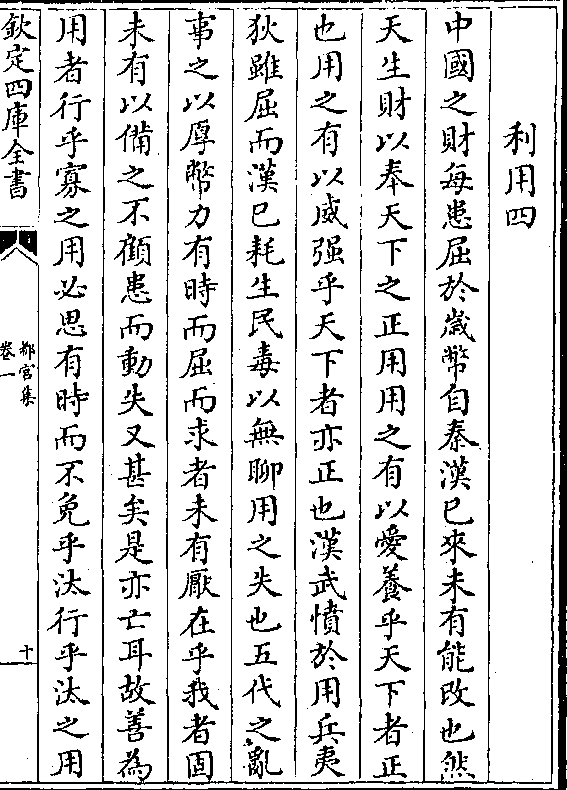 利用四
中國之財每患屈於歲幣自秦漢已來未有能改也然
天生財以奉天下之正用用之有以愛養乎天下者正
也用之有以威强乎天下者亦正也漢武憤於用兵夷
狄雖屈而漢已耗生民毒以無聊用之失也五代之亂
事之以厚幣力有時而屈而求者未有厭在乎我者固
未有以備之不顧患而動失又甚矣是亦亡耳故善為
用者行乎寡之用必思有時而不免乎汰行乎汰之用
欽定四庫全書
都官集
卷一
十